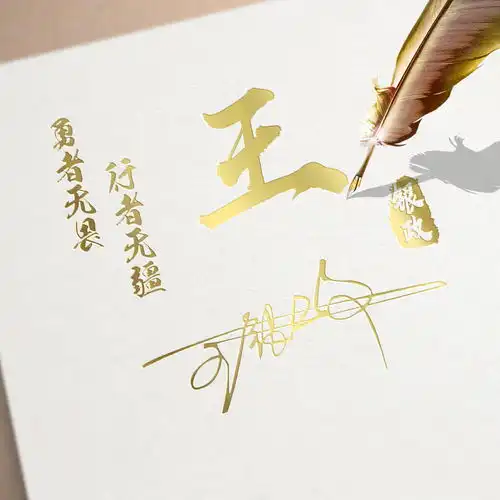 勇者无畏
行者无疆
王
银政